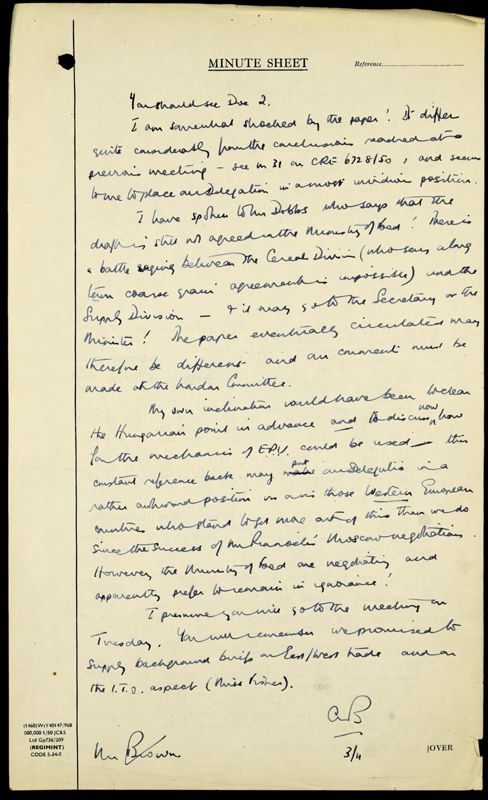 MINUTE SHEET
Reference
You should see Doc 2.
I am somewhat shocked by the paper! It differs
quite considerably from the conclusions reached at a
previous meeting – see m 31 on CRE 6728/50, and seems
to me to place our Delegation in a most invidious position.
I have spoken to Mr Dobbs who says that the
draft is still not agreed in the Ministry of Food! There is
a battle raging between the Cereal Division (who say a long
term coarse grain agreement is impossible) and the
Supply Division – & it may go to the Secretary or the
Minister! The paper eventually circulated may
therefore be different and our comment must be
made at the London Committee.
My own inclination would have been to clear
the Hungarian point in advance and to discuss now how
far the mechanism of E.P.U. could be used – this
constant reference back may put our Delegation in a
rather awkward position vis a vis those Western European
countries who stand to get more out of this than we do
since the success of Mr 's Moscow negotiations.
However the Ministry of Food are negotiating and
apparently prefer to remain in ignorance!
I presume you will go to the meeting on
Tuesday. You will remember we promised to
supply background briefs on East/West trade and on
the I.T.O. aspect (Miss Fisher).
3/4
Mr Brown
(1460) Wt Y40147/968
500,000 1/50 JC&S
Ltd Gp736/209
(REGIMINT)
CODE 5-34-0
[OVER